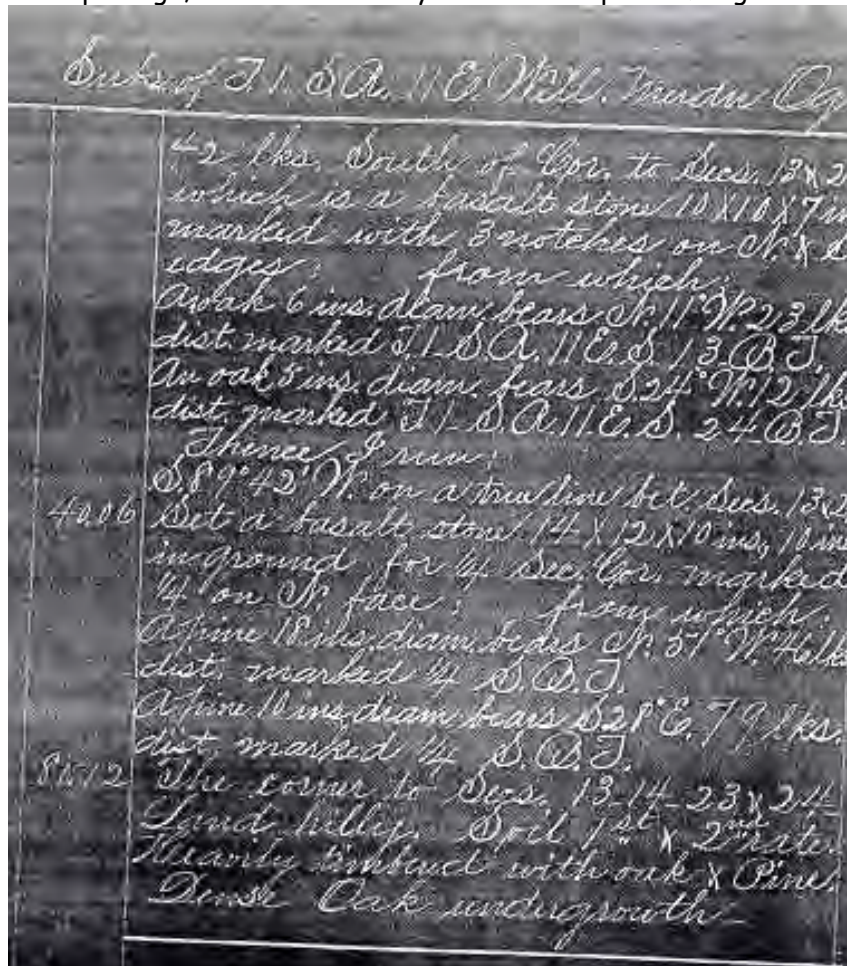 Subs of T. 1. S. R. 11 E. Will. Meridn Og
42 lks. South of Cor. to Secs. 13 & 2
which is a basalt stone 10 X 10 X 7 in
marked with 3 notches on N. & S
edges; from which;
An oak 6 ins. diam. bears N. 11° W. 23 lk
dist. marked T. 1. S. R. 11 E. S. 13. B. T.
An oak 5 ins. diam. bears S. 24° W. 12 lks
dist. marked T 1. S. R. 11 E. S. 24 B. T.
Thence I run;
S. 89° 42' W. on a true line bet. Secs. 13 & 2
40.06 Set a basalt stone 14 X 12 X 10 ins, 10 ins
in ground for ¼ Sec. Cor. marked
¼ on N. face; from which.
A pine 18 ins. diam. bears N. 57° W. 46 lks
dist. marked ¼ S. B. T.
A pine 10 ins, diam. bears S 28° E. 79 lks.
dist. marked ¼ S. B. T.
80.12 The corner to Secs. 13-14-23 & 24
Land hilly. Soil 1st & 2nd rate.
Heavily timbered with oak & Pine.
Dense Oak undergrowth